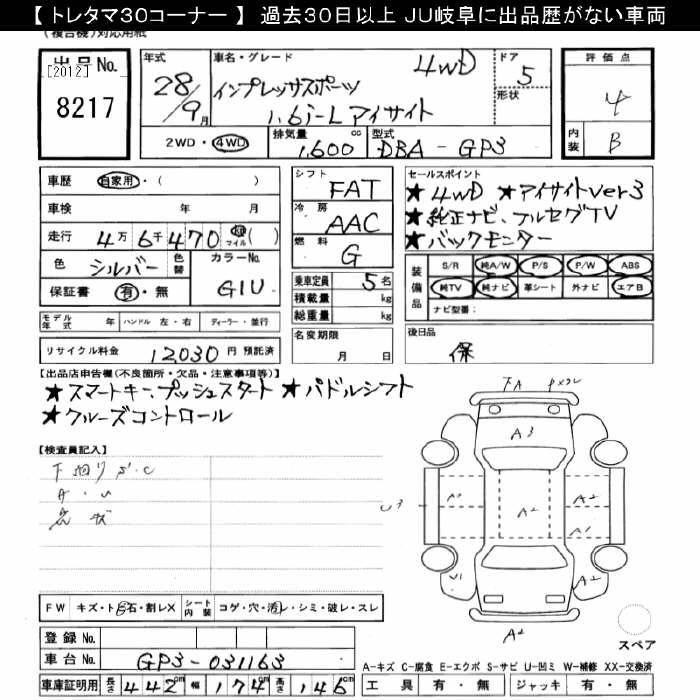 【 トレタマ30コーナー 】 過去30日以上 JU岐阜に出品歴がない車両
(複合機)対応用紙
出品No.
[2012]
8217
年式
28/9月
車名・グレード
インプレッサスポーツ 4WD
1.6i-L アイサイト
ドア
5
形状
評価点
4
内装
B
2WD・4WD
排気量
1,600 cc
型式
DBA - GP3
車歴 自家用・( )
車検 年 月
走行 4万6千470 マイル ( )
色 シルバー 色替
カラーNo. G1U
保証書 有・無
モデル年式 年 ハンドル 左・右 ディーラー・並行
リサイクル料金 12,030 円 預託済
シフト FAT
冷房 AAC
燃料 G
乗車定員 5名
積載量 kg
総重量 kg
名変期限
月 日
セールスポイント
★4WD ★アイサイトver3
★純正ナビ、フルセグTV
★バックモニター
装備品
S/R 純A/W P/S P/W ABS
純TV 純ナビ 革シート 外ナビ エアB
ナビ型番:
後日品
保
【出品店申告欄(不良箇所・欠品・注意事項等)】
★スマートキー、プッシュスタート ★パドルシフト
★クルーズコントロール
【検査員記入】
下廻りS・C
A・U
FA
A3
A2
A2
A2
A1
U1
A2
A2
スペア
FW キズ・ト石・割レX シート内装 コゲ・穴・汚レ・シミ・破レ・スレ
登録 No.
車台 No. GP3-031163
車庫証明用 長さ 442cm 幅 174cm 高さ 146cm
A-キズ C-腐食 E-エクボ S-サビ U-凹ミ W-補修 XX-交換済
工具 有・無 ジャッキ 有・無